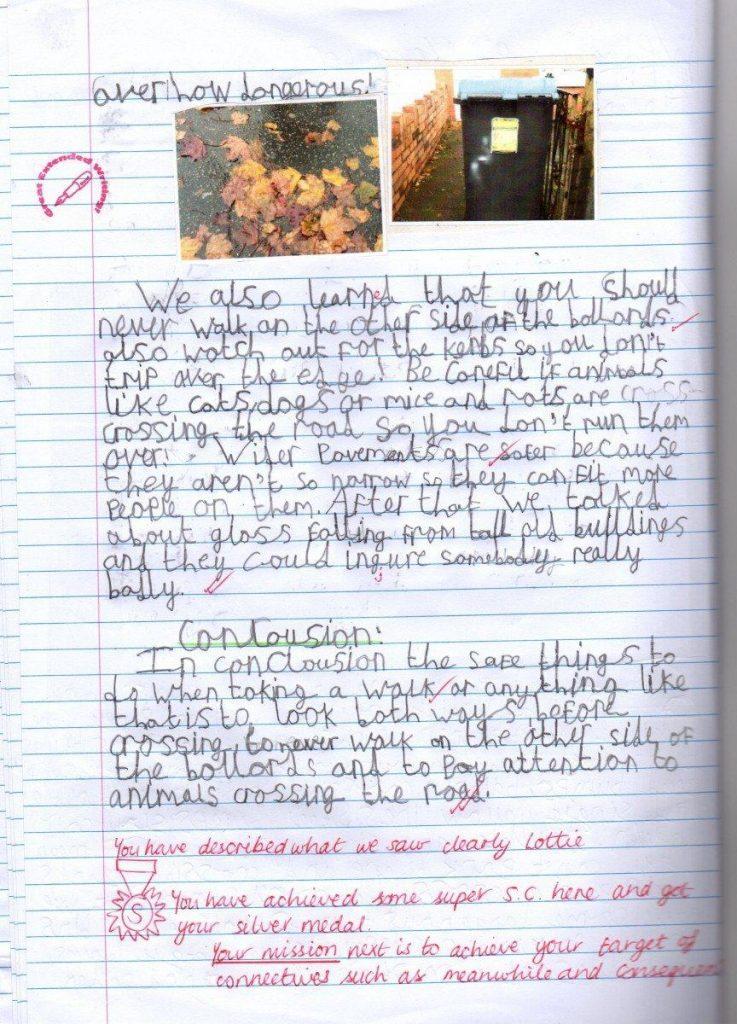 over! how dangerous!
Great Extended Writing!
We also learned that you should
never walk on the other side of the bollords
also watch out for the kerbs so you don't
trip over the edge! Be careful if animals
like cats, dogs or mice and rats are cross
crossing the road so you don't run them
over. Wider Pavements are safer because
they aren't so narrow so they can fit more
People on them. After that we talked
about glass falling from tall old buildings
and they could ingure somebody really
badly.
Conclousion:
In conclousion the safe things to
do when taking a walk or anything like
that is to look both ways before
crossing, to never walk on the other side of
the bollords and to Pay attention to
animals crossing the road.
You have described what we saw clearly Lottie
S
You have achieved some super S.C. here and get
your silver medal.
Your mission next is to achieve your target of
connectives such as meanwhile and